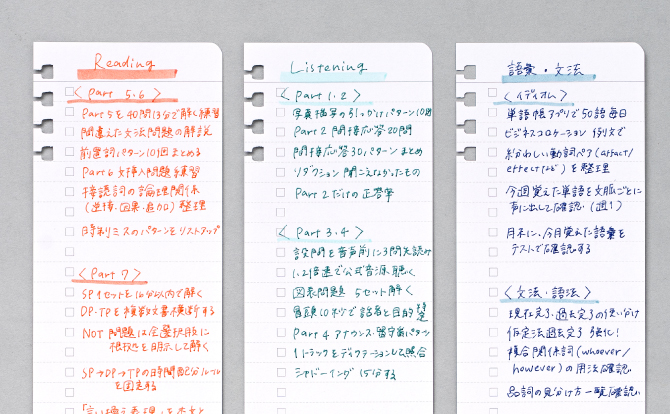 Reading
〈Part 5.6〉
Part5を40問13分で解く練習
間違えた文法問題の解説
前置詞パターン10個まとめる
Part6 文挿入問題練習
接続詞の論理関係
(逆接・因果・追加)整理
時制ミスのパターンをリストアップ
〈Part 7〉
SP1セットを10分以内で解く
DP・TPを複数文書横断する
NOT問題は全選択肢に
根拠を明示して解く
SP→DP→TPの時間配分ルール
を固定する
「言い換え表現」を本文と
Listening
〈Part 1.2〉
写真描写の引っかけパターン10個
Part2 間接応答20問
間接応答30パターンまとめ
リダクション 聞こえなかったもの
Part2だけの正答率
〈Part 3.4〉
設問を音声前に3問先読み
1.2倍速で公式音源聴く
図表問題 5セット解く
冒頭10秒で話者と目的
Part4 アナウンス・留守電パターン
1トラックをディクテーションして照合
シャドーイング 15分する
語彙・文法
〈イディオム〉
単語帳アプリで50語毎日
ビジネスコロケーション 例文で
紛らわしい動詞ペア(affact/
effectなど)を整理
今週覚えた単語を文脈ごとに
書き出して確認(週1)
月末に、今月覚えた語彙を
テストで確認する
〈文法・語法〉
現在完了・過去完了の使い分け
仮定法過去完了 強化!
複合関係詞(whoever/
however)の用法確認
品詞の見分け方一覧確認